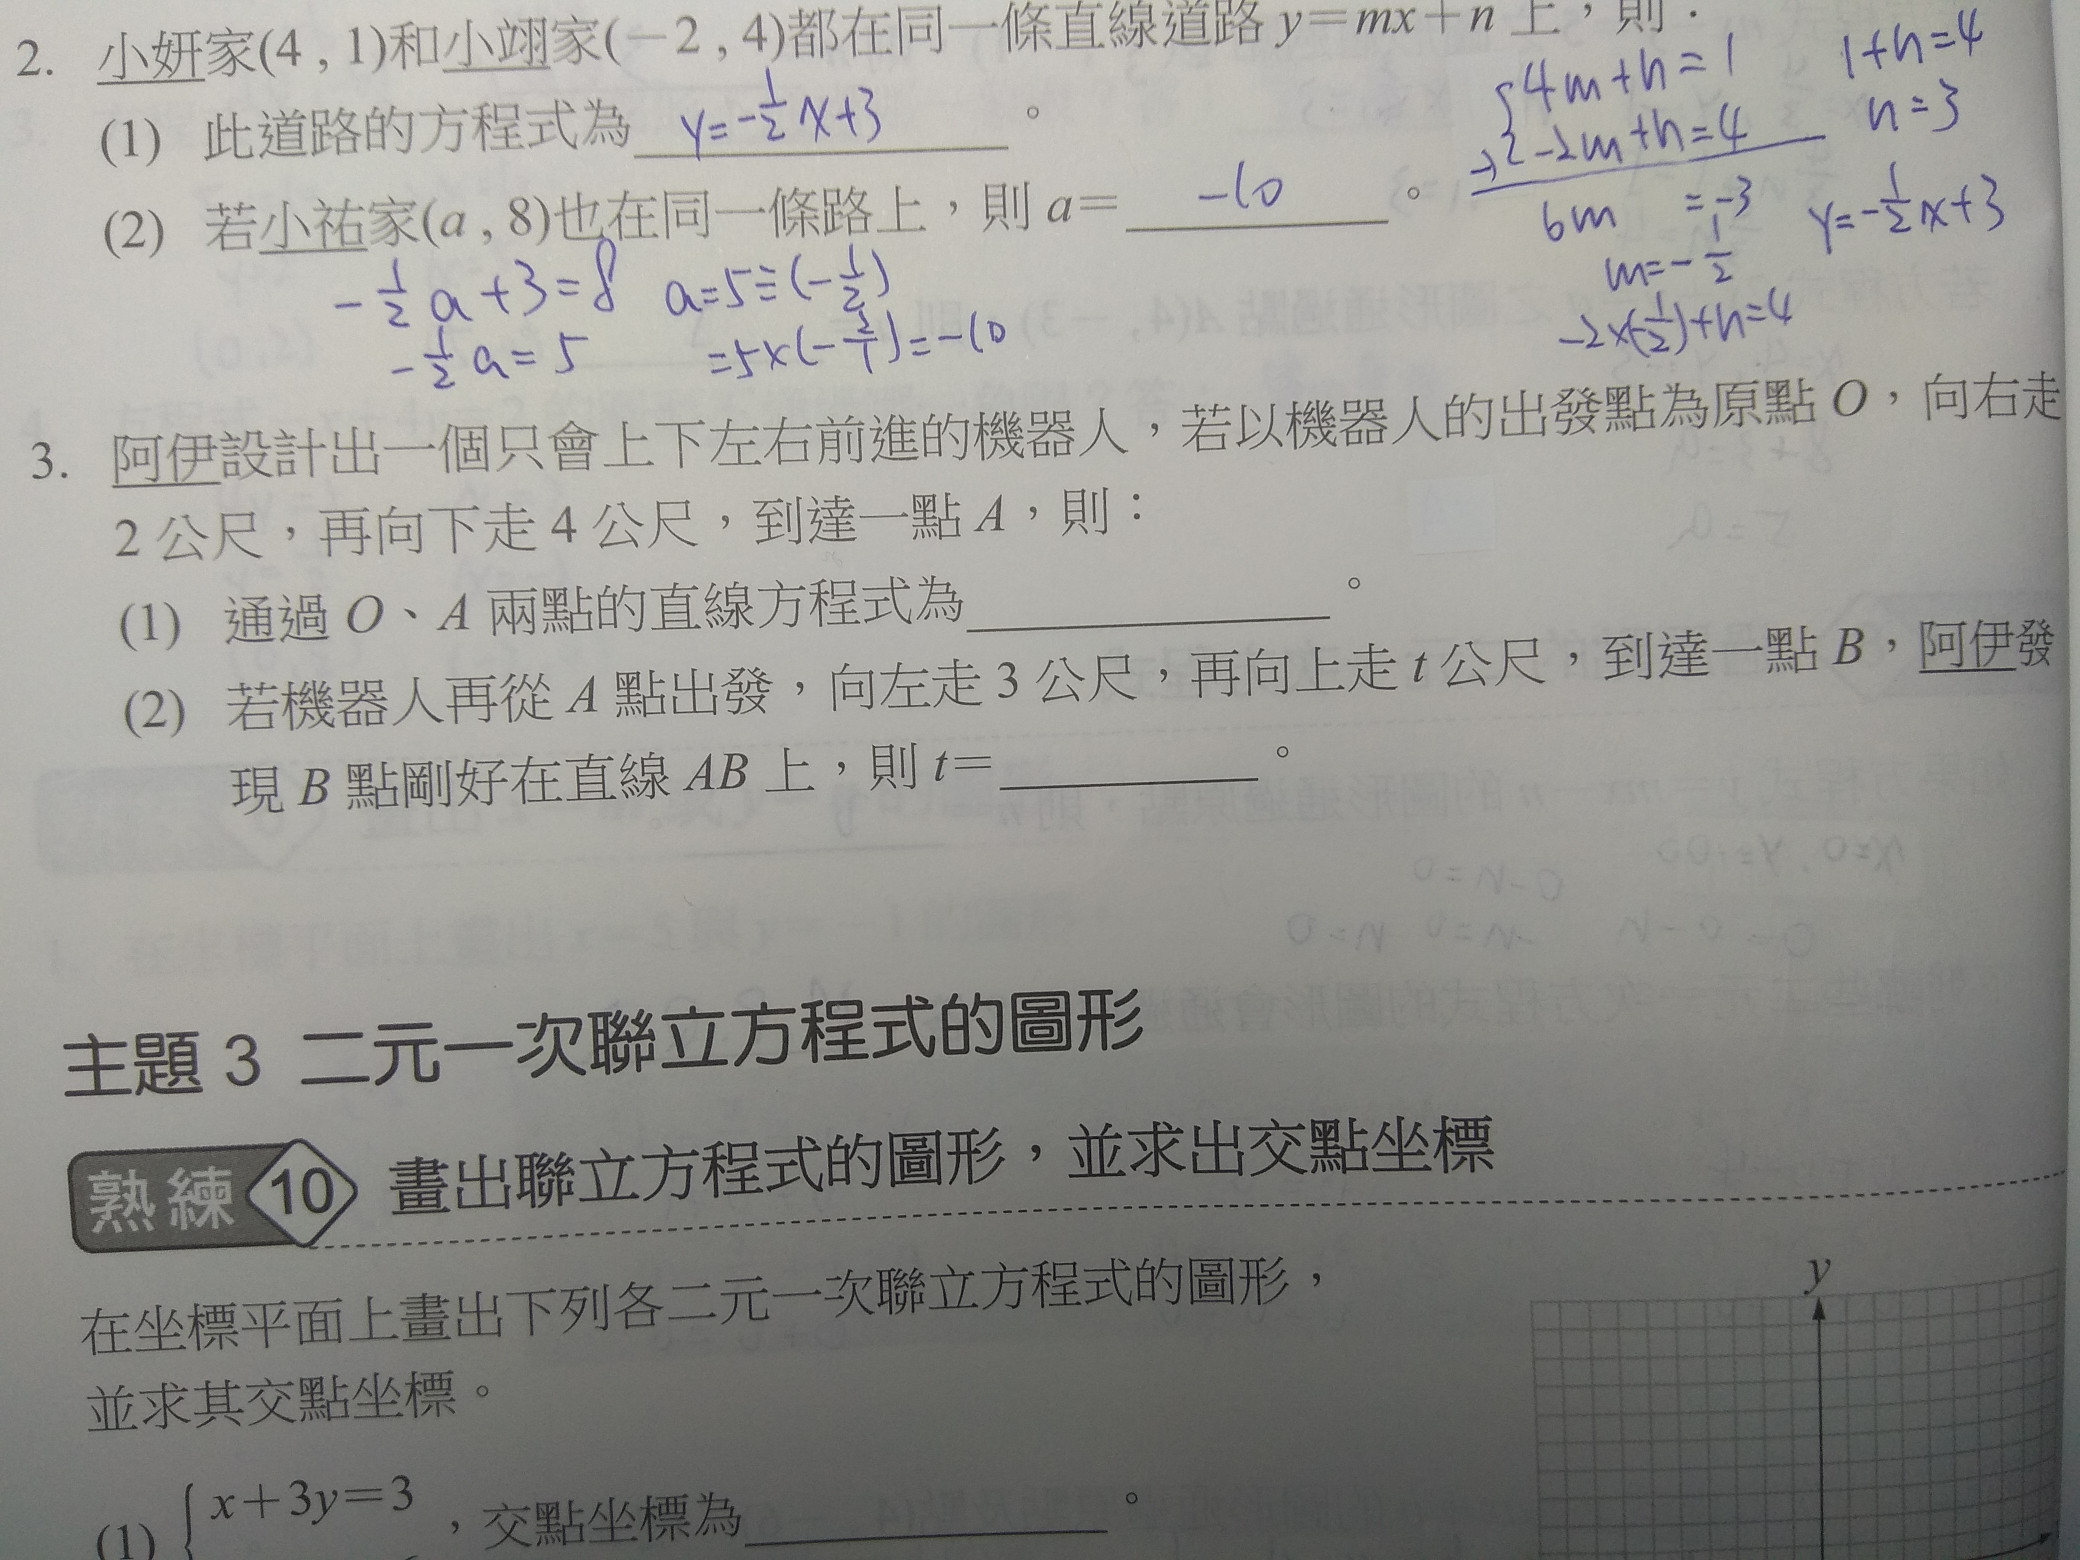 2. 小妍家(4 , 1)和小翊家(－2 , 4)都在同一條直線道路 y＝mx＋n 上，則：
(1) 此道路的方程式為 y=-1/2x+3 。
(2) 若小祐家(a , 8)也在同一條路上，則 a＝ -10 。
4m+n=1
-2m+n=4
6m =-3
m=-1/2
-2×(-1/2)+n=4
1+n=4
n=3
y=-1/2x+3
-1/2a+3=8
-1/2a=5
a=5÷(-1/2)
=5×(-2/1)=-10
3. 阿伊設計出一個只會上下左右前進的機器人，若以機器人的出發點為原點 O，向右走
2 公尺，再向下走 4 公尺，到達一點 A，則：
(1) 通過 O、A 兩點的直線方程式為 。
(2) 若機器人再從 A 點出發，向左走 3 公尺，再向上走 t 公尺，到達一點 B，阿伊發
現 B 點剛好在直線 AB 上，則 t＝ 。
主題 3 二元一次聯立方程式的圖形
熟練 10 畫出聯立方程式的圖形，並求出交點坐標
在坐標平面上畫出下列各二元一次聯立方程式的圖形，
並求其交點坐標。
y
(1) x＋3y＝3 ，交點坐標為 。